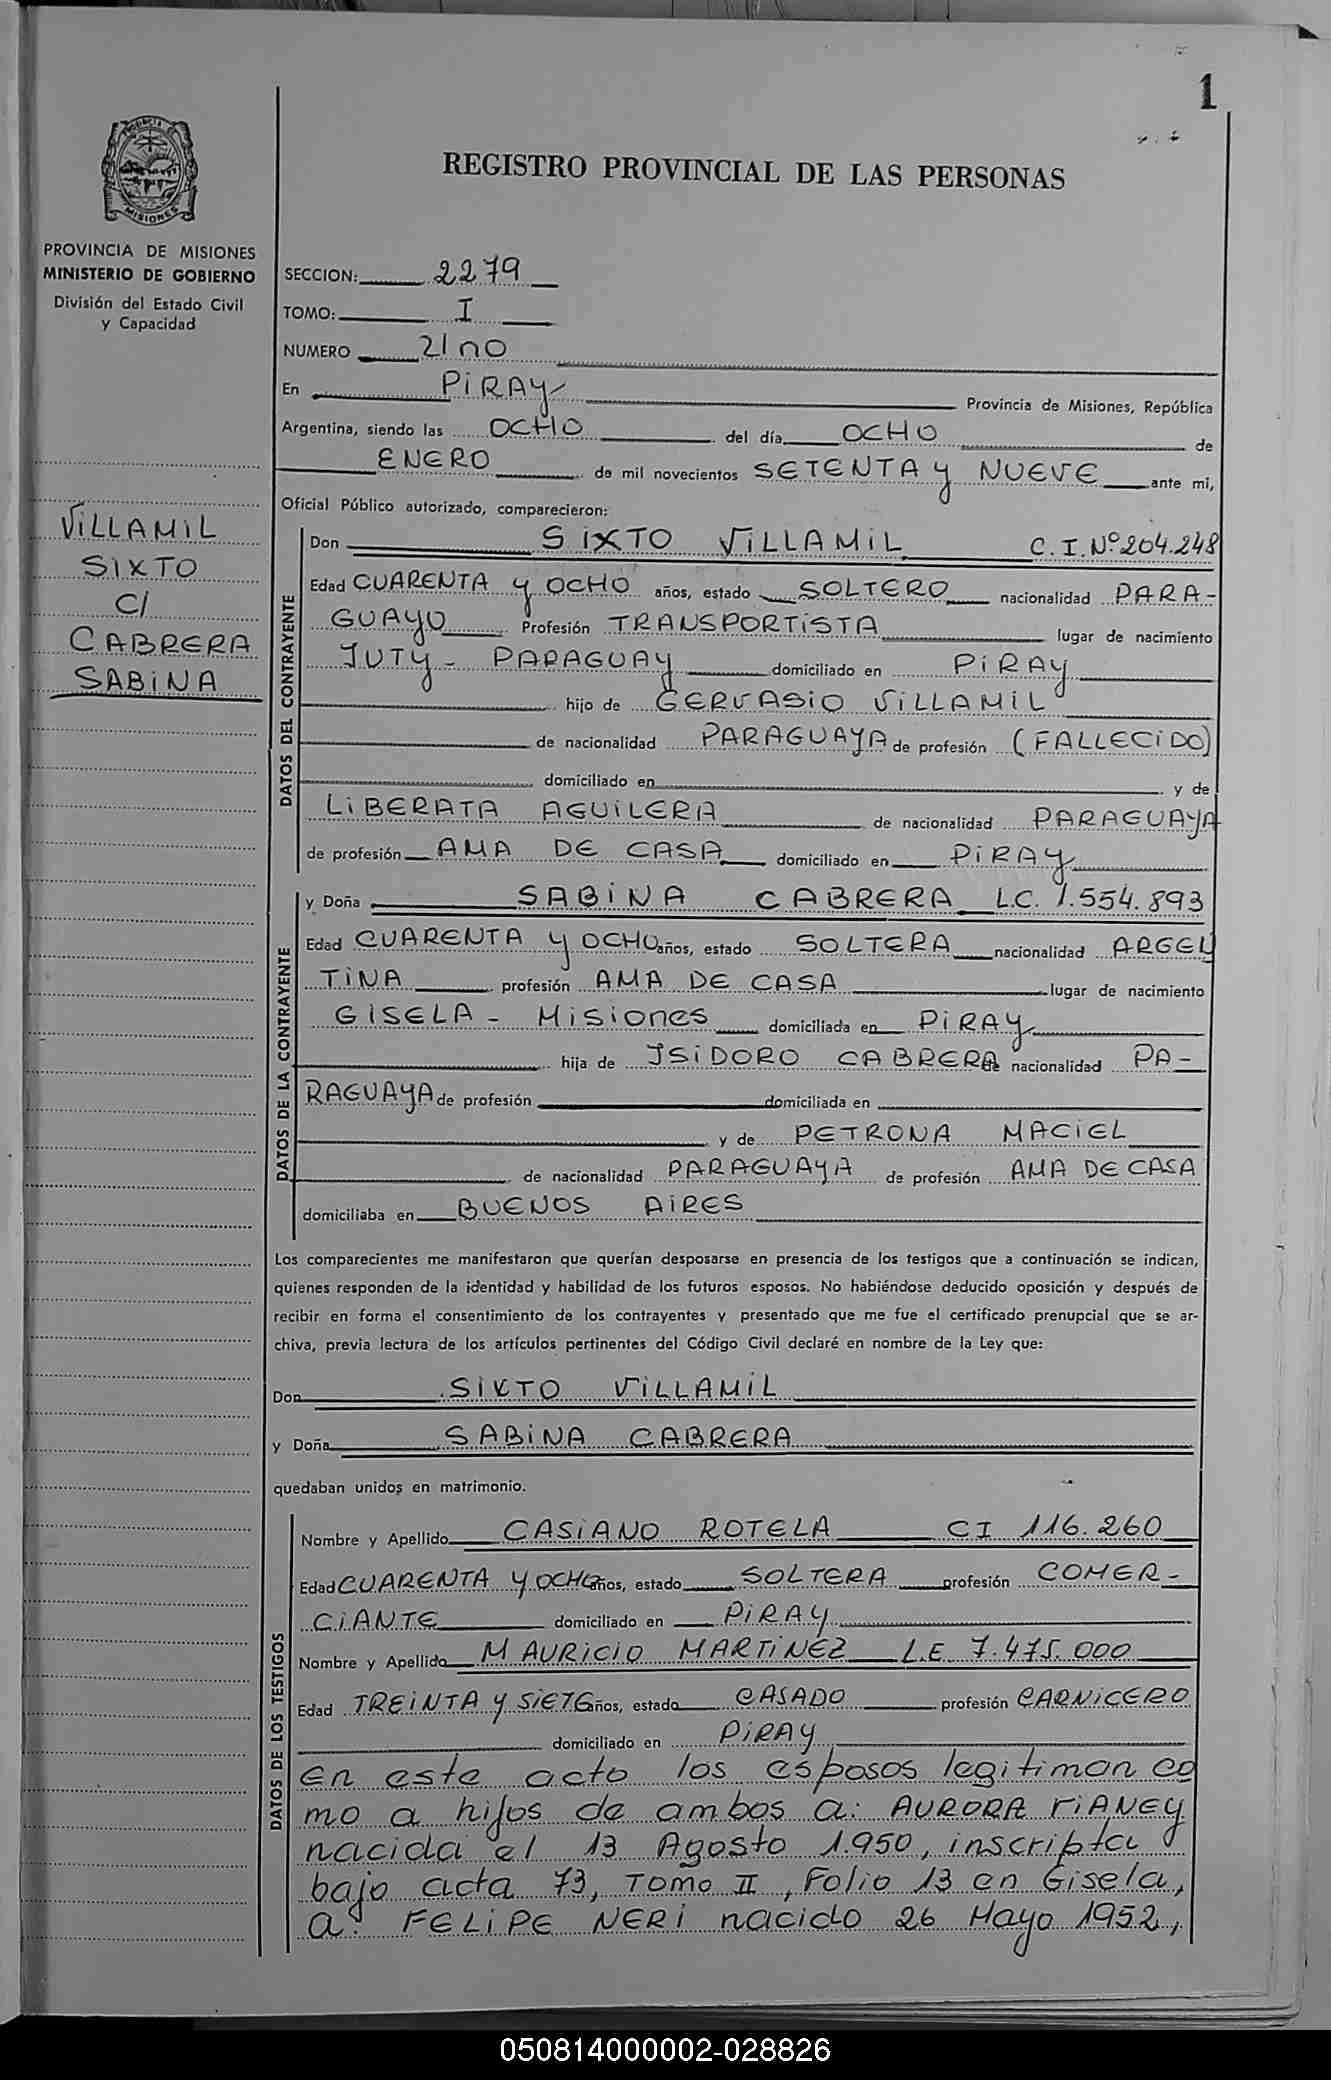 1
PROVINCIA DE MISIONES
REGISTRO PROVINCIAL DE LAS PERSONAS
PROVINCIA DE MISIONES
MINISTERIO DE GOBIERNO
División del Estado Civil
y Capacidad
VILLAMIL
SIXTO
C/
CABRERA
SABINA
SECCION: 2279
TOMO: I
NUMERO UNO
En PIRAY Provincia de Misiones, República
Argentina, siendo las OCHO del día OCHO de
ENERO de mil novecientos SETENTA Y NUEVE ante mi,
Oficial Público autorizado, comparecieron:
DATOS DEL CONTRAYENTE
Don SIXTO VILLAMIL C.I.Nº204.248
Edad CUARENTA Y OCHO años, estado SOLTERO nacionalidad PARA-
GUAYO Profesión TRANSPORTISTA lugar de nacimiento
YUTY - PARAGUAY domiciliado en PIRAY
hijo de GERVASIO VILLAMIL
de nacionalidad PARAGUAYA de profesión (FALLECIDO)
domiciliado en y de
LIBERATA AGUILERA de nacionalidad PARAGUAYA
de profesión AMA DE CASA domiciliado en PIRAY
DATOS DE LA CONTRAYENTE
y Doña SABINA CABRERA L.C. 1.554.893
Edad CUARENTA Y OCHO años, estado SOLTERA nacionalidad ARGEN
TINA profesión AMA DE CASA lugar de nacimiento
GISELA - Misiones domiciliada en PIRAY
hija de ISIDORO CABRERA de nacionalidad PA-
RAGUAYA de profesión domiciliada en
y de PETRONA MACIEL
de nacionalidad PARAGUAYA de profesión AMA DE CASA
domiciliaba en BUENOS AIRES
Los comparecientes me manifestaron que querían desposarse en presencia de los testigos que a continuación se indican,
quienes responden de la identidad y habilidad de los futuros esposos. No habiéndose deducido oposición y después de
recibir en forma el consentimiento de los contrayentes y presentado que me fue el certificado prenupcial que se ar-
chiva, previa lectura de los artículos pertinentes del Código Civil declaré en nombre de la Ley que:
Don SIXTO VILLAMIL
y Doña SABINA CABRERA
quedaban unidos en matrimonio.
DATOS DE LOS TESTIGOS
Nombre y Apellido CASIANO ROTELA CI 116.260
Edad CUARENTA Y OCHO años, estado SOLTERA profesión COMER-
CIANTE domiciliado en PIRAY
Nombre y Apellido MAURICIO MARTINEZ L.E 7.475.000
Edad TREINTA Y SIETE años, estado CASADO profesión CARNICERO
domiciliado en PIRAY
En este acto los esposos legitiman co
mo a hijos de ambos a: AURORA rIANEY
nacida el 13 Agosto 1.950, inscripta
bajo acta 73, Tomo II, Folio 13 en Gisela,
a: FELIPE NERI nacido 26 Mayo 1952,
050814000002-028826